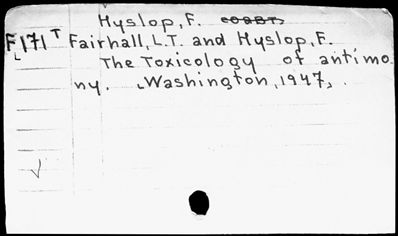 Hyslop, F.
F171 T Fairhall, L.T. and Hyslop, F.
The Toxicology of antimo
ny. Washington, 1947.